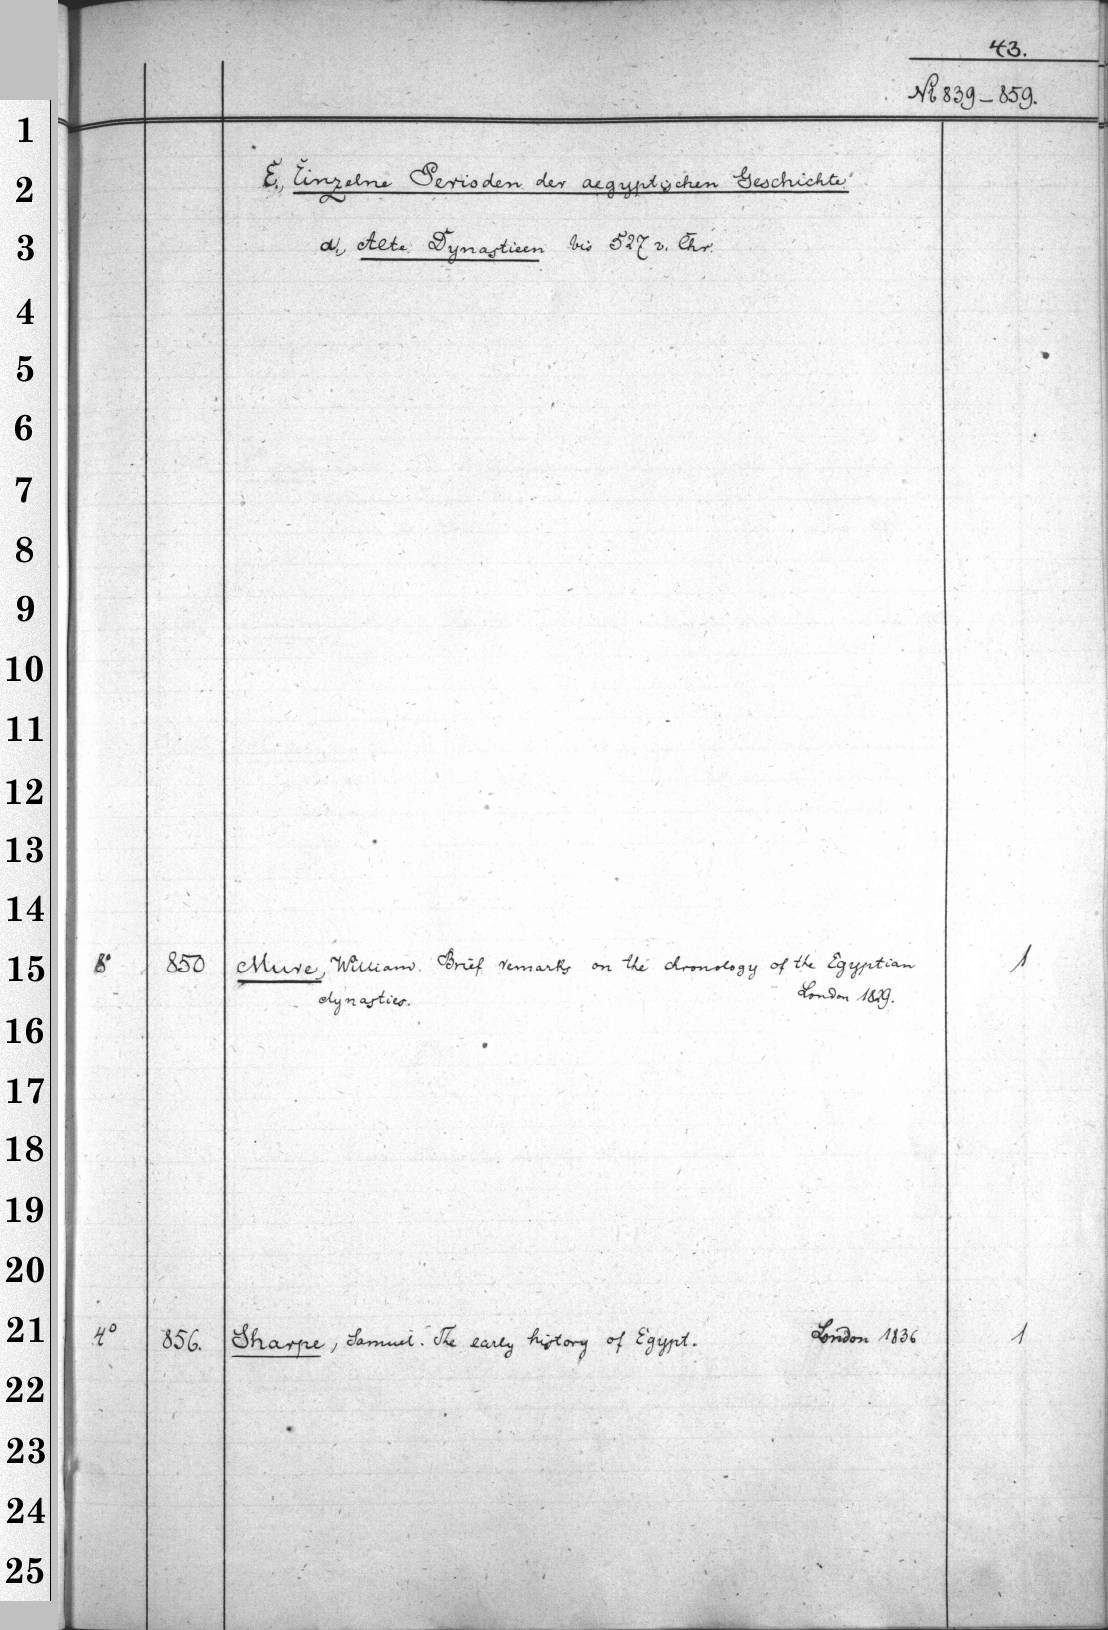 43.
№ 839-859.
1
2 E., Einzelne Perioden der aegyptischen Geschichte.
3 Alte Dynastieen bis 527 v. Chr.
4
5
6
7
8
9
10
11
12
13
14
15 8° 850 Mure, William. Brief remarks on the chronology of the Egyptian 1
dynasties. London 1829.
16
17
18
19
20
21 4° 856. Sharpe, Samuel. The early history of Egypt. London 1836 1
22
23
24
25